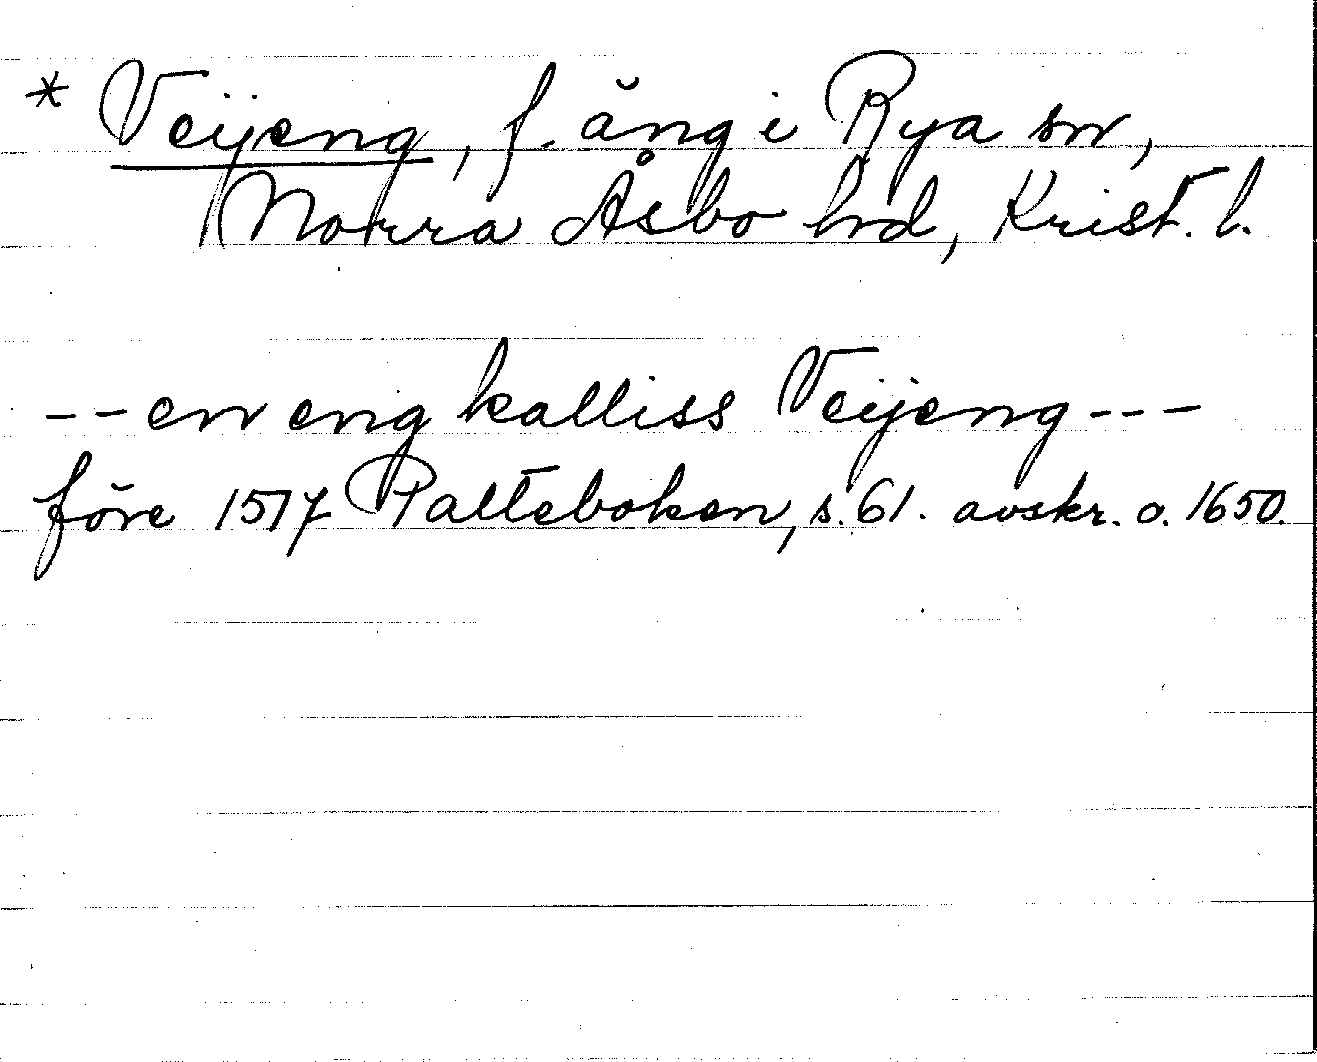 * Veijeng, f. äng i Rya sn,
Norra Åsbo hrd, Krist. l.
-- en eng kalliss Veijeng ---
före 1517 Palteboken, s. 61. avskr. o. 1650.